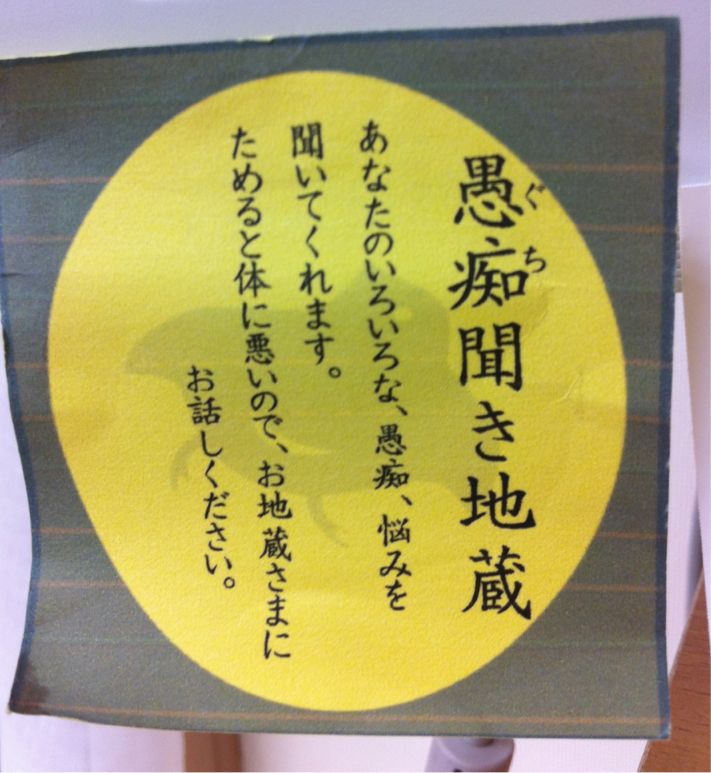 愚痴聞き地蔵
ぐち
あなたのいろいろな、愚痴、悩みを
聞いてくれます。
ためると体に悪いので、お地蔵さまに
お話しください。